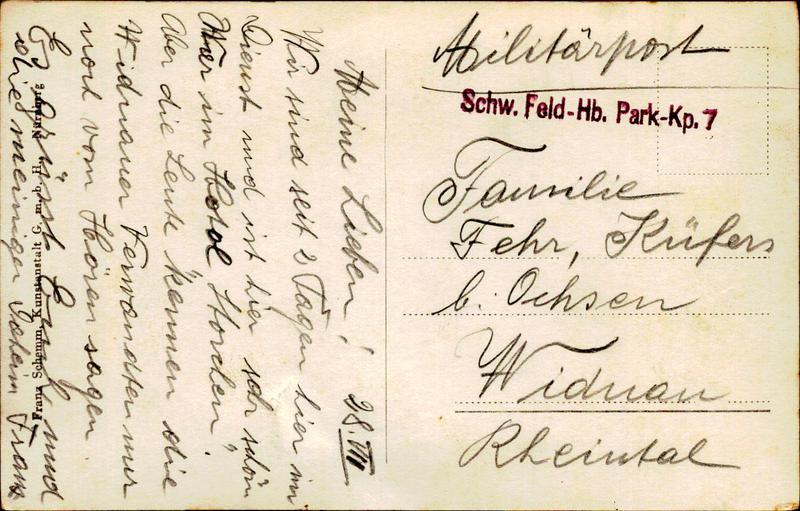 Militärpost
Schw. Feld-Hb. Park-Kp. 7
Familie
Fehr, Küfers
b. Ochsen
Widnau
Rheintal
Meine Lieben! 28. VII
Wir sind seit 2 Tagen hier im
Dienst und ist hier sehr schön
War im Hotel Storchen,
Aber die Leute kennen die
Widnauer Verwandten nur
noch vom Hören sagen
Es grüsst Euch und
die meinigen daheim Franz
Franz Schemm, Kunstanstalt G. m. b. H., Nürnberg